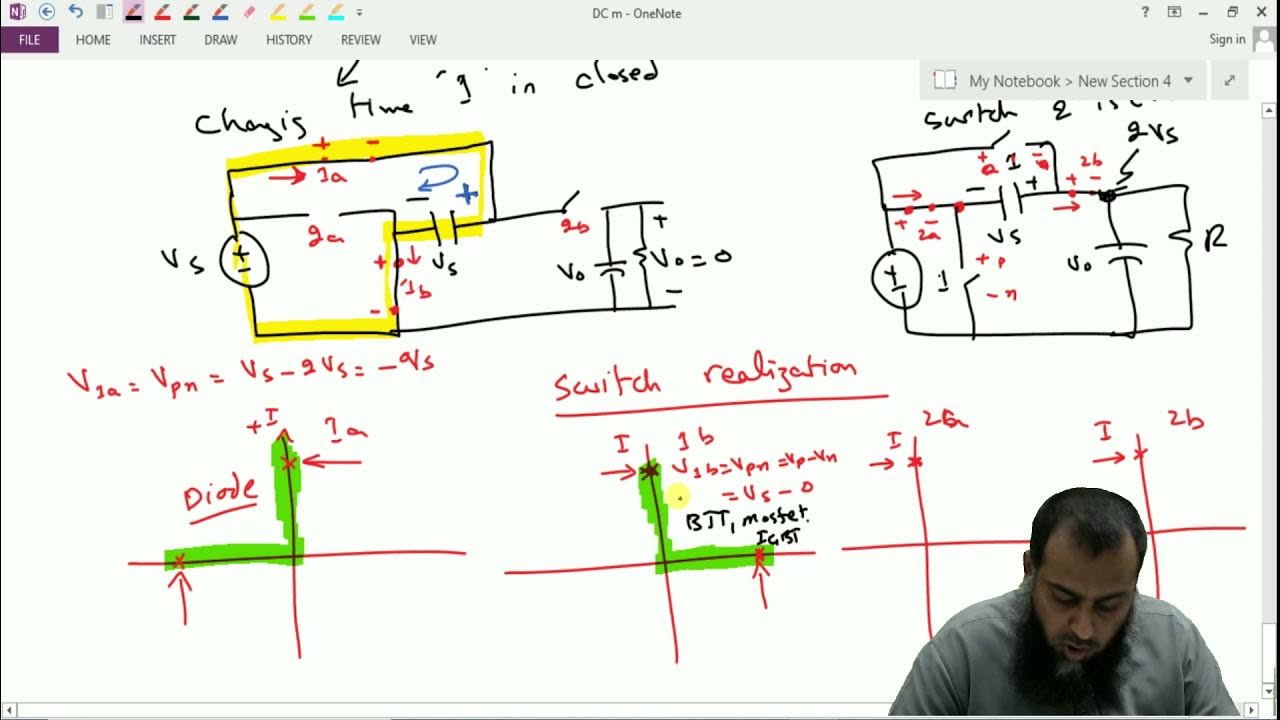 DC m - OneNote
?
Sign in
FILE HOME INSERT DRAW HISTORY REVIEW VIEW
My Notebook > New Section 4
time "1" in closed
switch 2 is
+ -
1a
2a
- +
Vs
Vs
2b
+
1b
-
Vo
+
Vo = 0
-
2Vs
a 1
- +
2b
+ -
+ -
2a
Vs
1
+ p
- n
Vo
R
V1a = Vpn = Vs - 2Vs = -Vs
Switch realization
+I
1a
Diode
I
1b
V1b = Vpn = Vp - Vn
= Vs - 0
BJT, mosfet.
IGBT
I
2a
I
2b